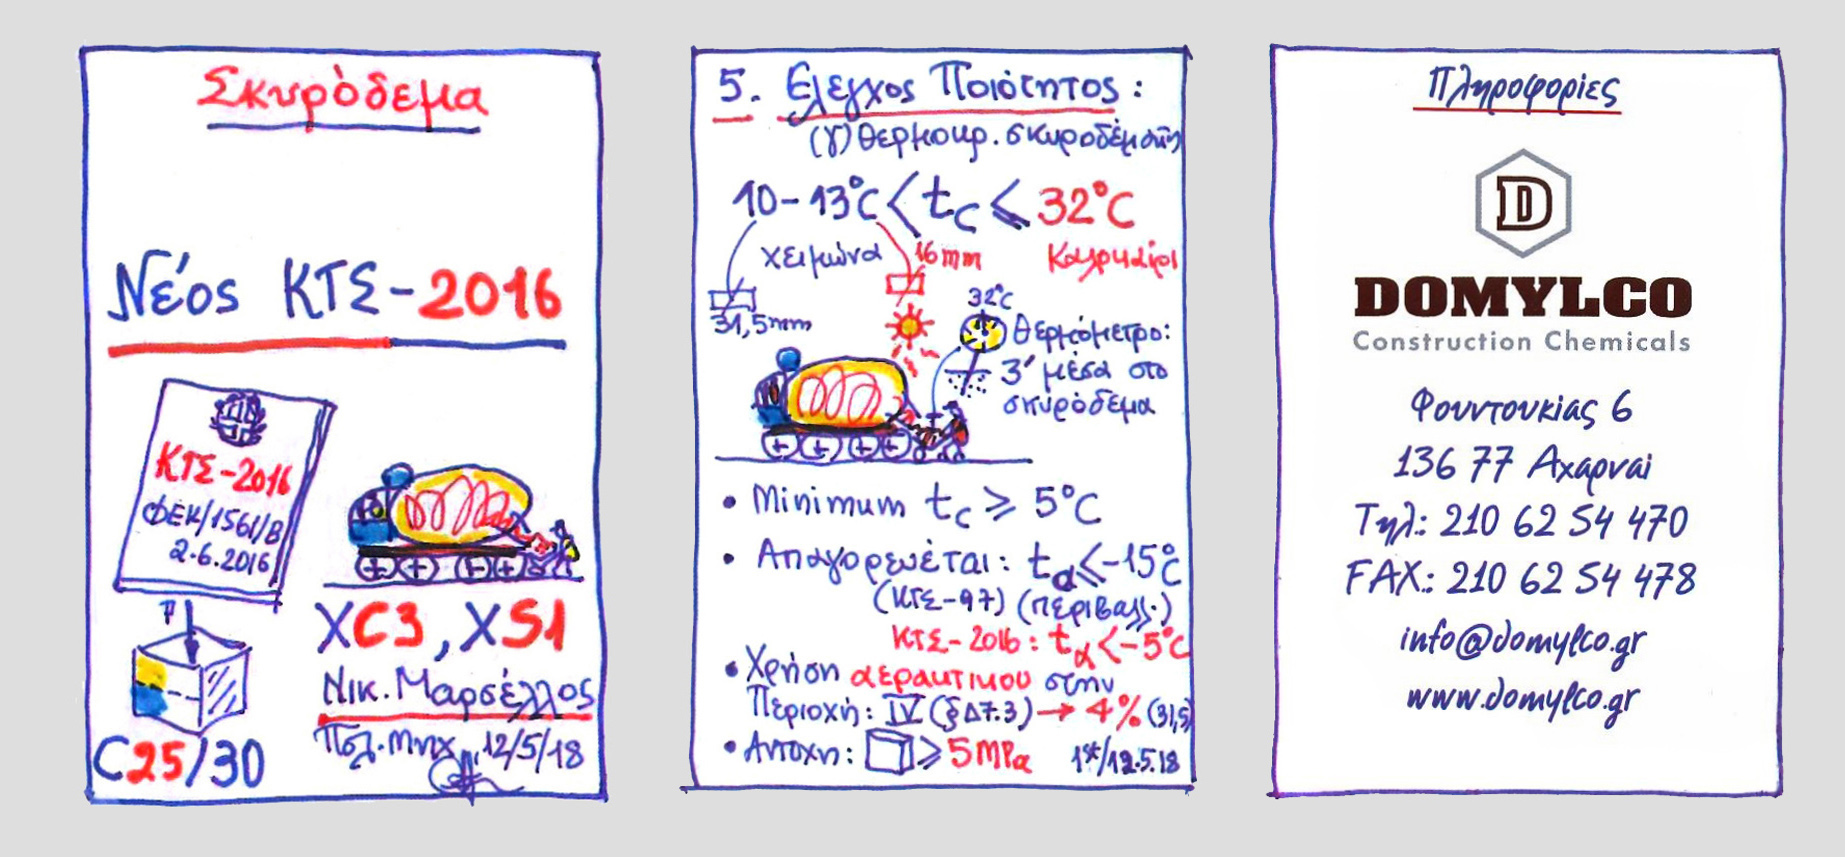 Σκυρόδεμα
Νέος ΚΤΣ-2016
ΚΤΣ-2016
ΦΕΚ/1561/Β
2.6.2016
C25/30
XC3, XS1
Νικ. Μαρσέλλος
Πολ. Μηχ. 12/5/18
5. Ελεγχος Ποιότητος:
(γ) θερμοκρ. σκυροδέματος
10-13°C < tc ≤ 32°C
χειμώνα
16mm
Καλοκαίρι
31,5mm
32°C
Θερμόμετρο:
3' μέσα στο
σκυρόδεμα
• Minimum tc ≥ 5°C
• Απαγορευέται: tα < -15°C
(ΚΤΣ-97) (περιβαλλ.)
ΚΤΣ-2016: tα < -5°C
• Χρήση αερακτικου στην
Περιοχή: IV (§Δ7.3) → 4% (31,5)
• Αντοχη: ≥ 5MPa
1st/12.5.18
Πληροφορίες
D
DOMYLCO
Construction Chemicals
Φουντουκίας 6
136 77 Αχαρναί
Τηλ.: 210 62 54 470
FAX.: 210 62 54 478
info@domylco.gr
www.domylco.gr